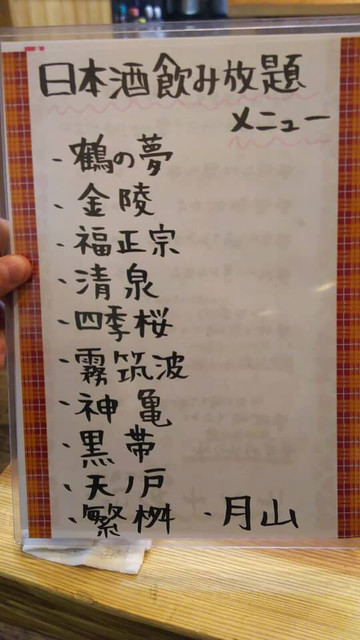 日本酒飲み放題
メニュー
・鶴の夢
・金陵
・福正宗
・清泉
・四季桜
・霧筑波
・神亀
・黒帯
・天ノ戸
・繁桝 ・月山